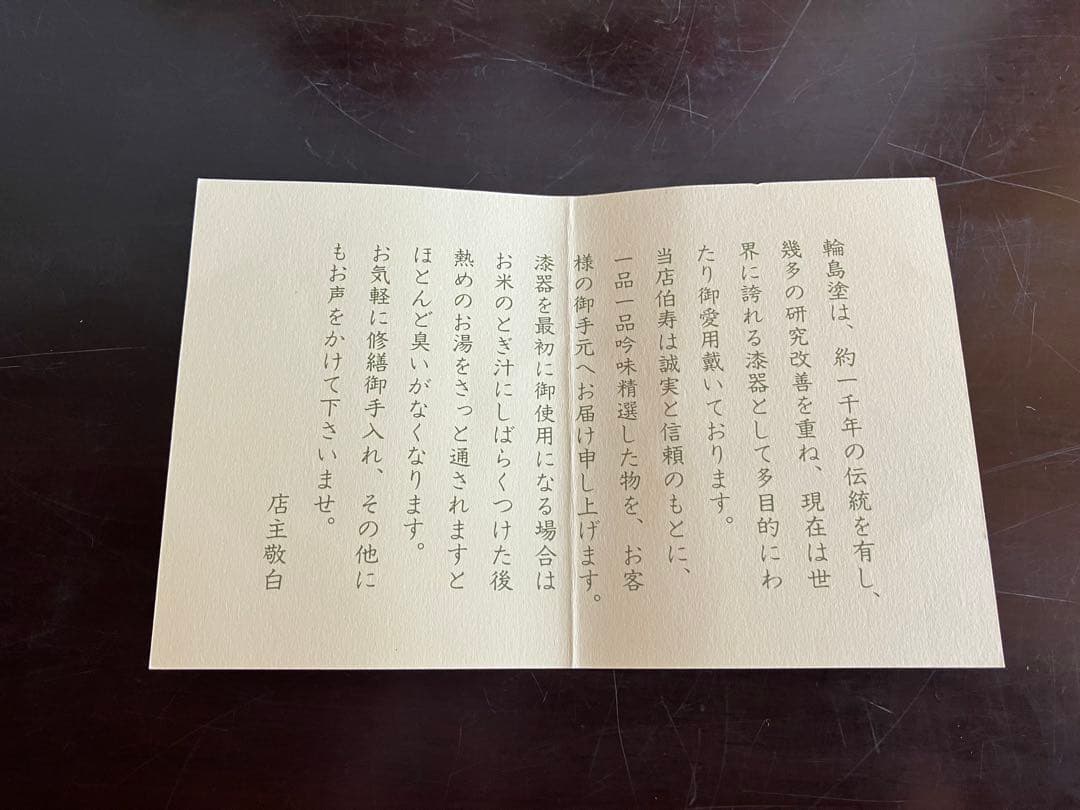 輪島塗は、約一千年の伝統を有し、
幾多の研究改善を重ね、現在は世
界に誇れる漆器として多目的にわ
たり御愛用戴いております。
当店伯寿は誠実と信頼のもとに、
一品一品吟味精選した物を、お客
様の御手元へお届け申し上げます。
漆器を最初に御使用になる場合は
お米のとぎ汁にしばらくつけた後
熱めのお湯をさっと通されますと
ほとんど臭いがなくなります。
お気軽に修繕御手入れ、その他に
もお声をかけて下さいませ。
店主敬白